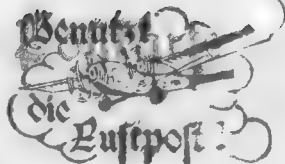 Benützt
die
Luftpost!